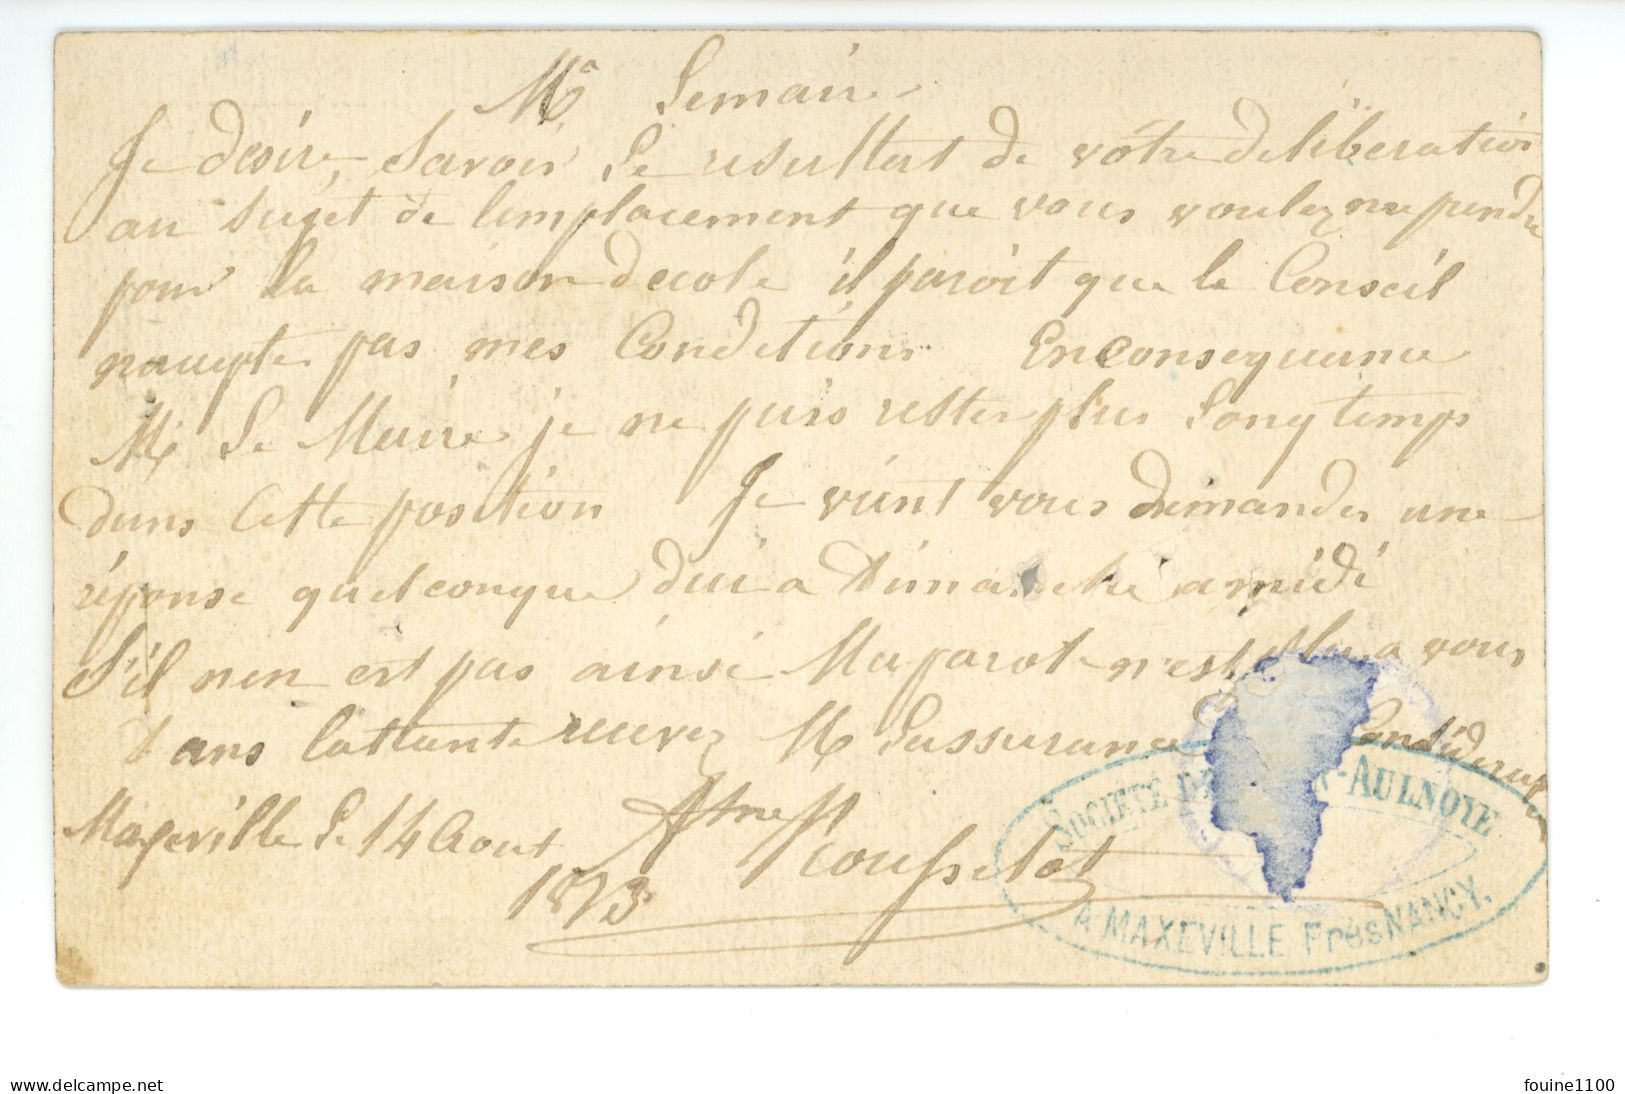 Mr Lemaire
Je desire, Savoir Le resultat de vôtre deliberation
au Sujet de lemplacement que vous voulez
pour la maison decole il paroit que le Conseil
naccepte pas mes Conditions Enconsequence
Mr Le Maire je ne puis rester plus Longtemps
dans Cette position Je vient vous demander une
réponse quelconque dui a Dimanche a midi
S'il nen est pas ainsi Maparole n'est plus a vous
dans lattante recevez Mr Lassurance
SOCIÉTÉ DE AULNOYE
Maxeville Le 14 Aout
1873
A MAXEVILLE Près NANCY.
delcampe.net
fouine1100